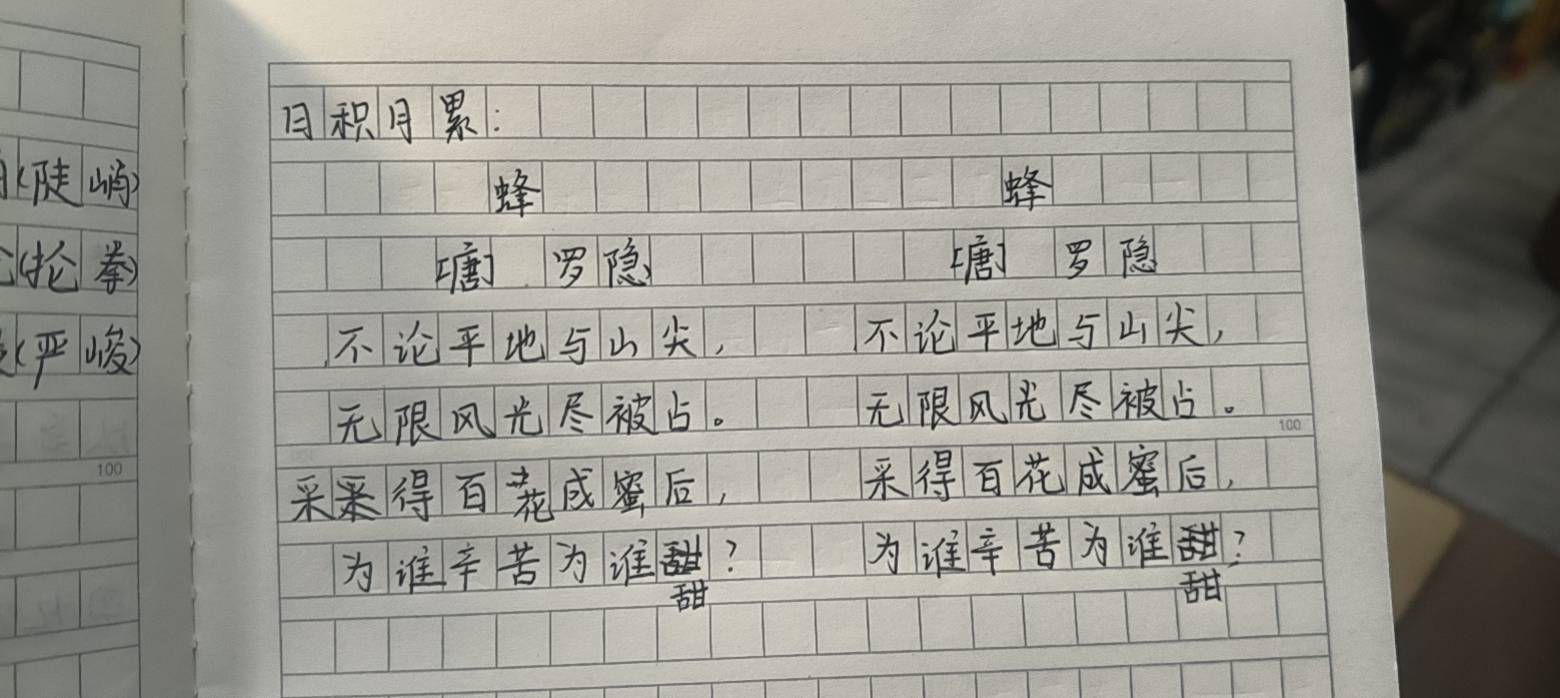 (陡峭)
(抡拳)
(严峻)
100
日积月累:
蜂 蜂
[唐] 罗隐 [唐] 罗隐
不论平地与山尖, 不论平地与山尖,
无限风光尽被占。 无限风光尽被占。
100
采得百花成蜜后, 采得百花成蜜后,
为谁辛苦为谁甜? 为谁辛苦为谁甜?